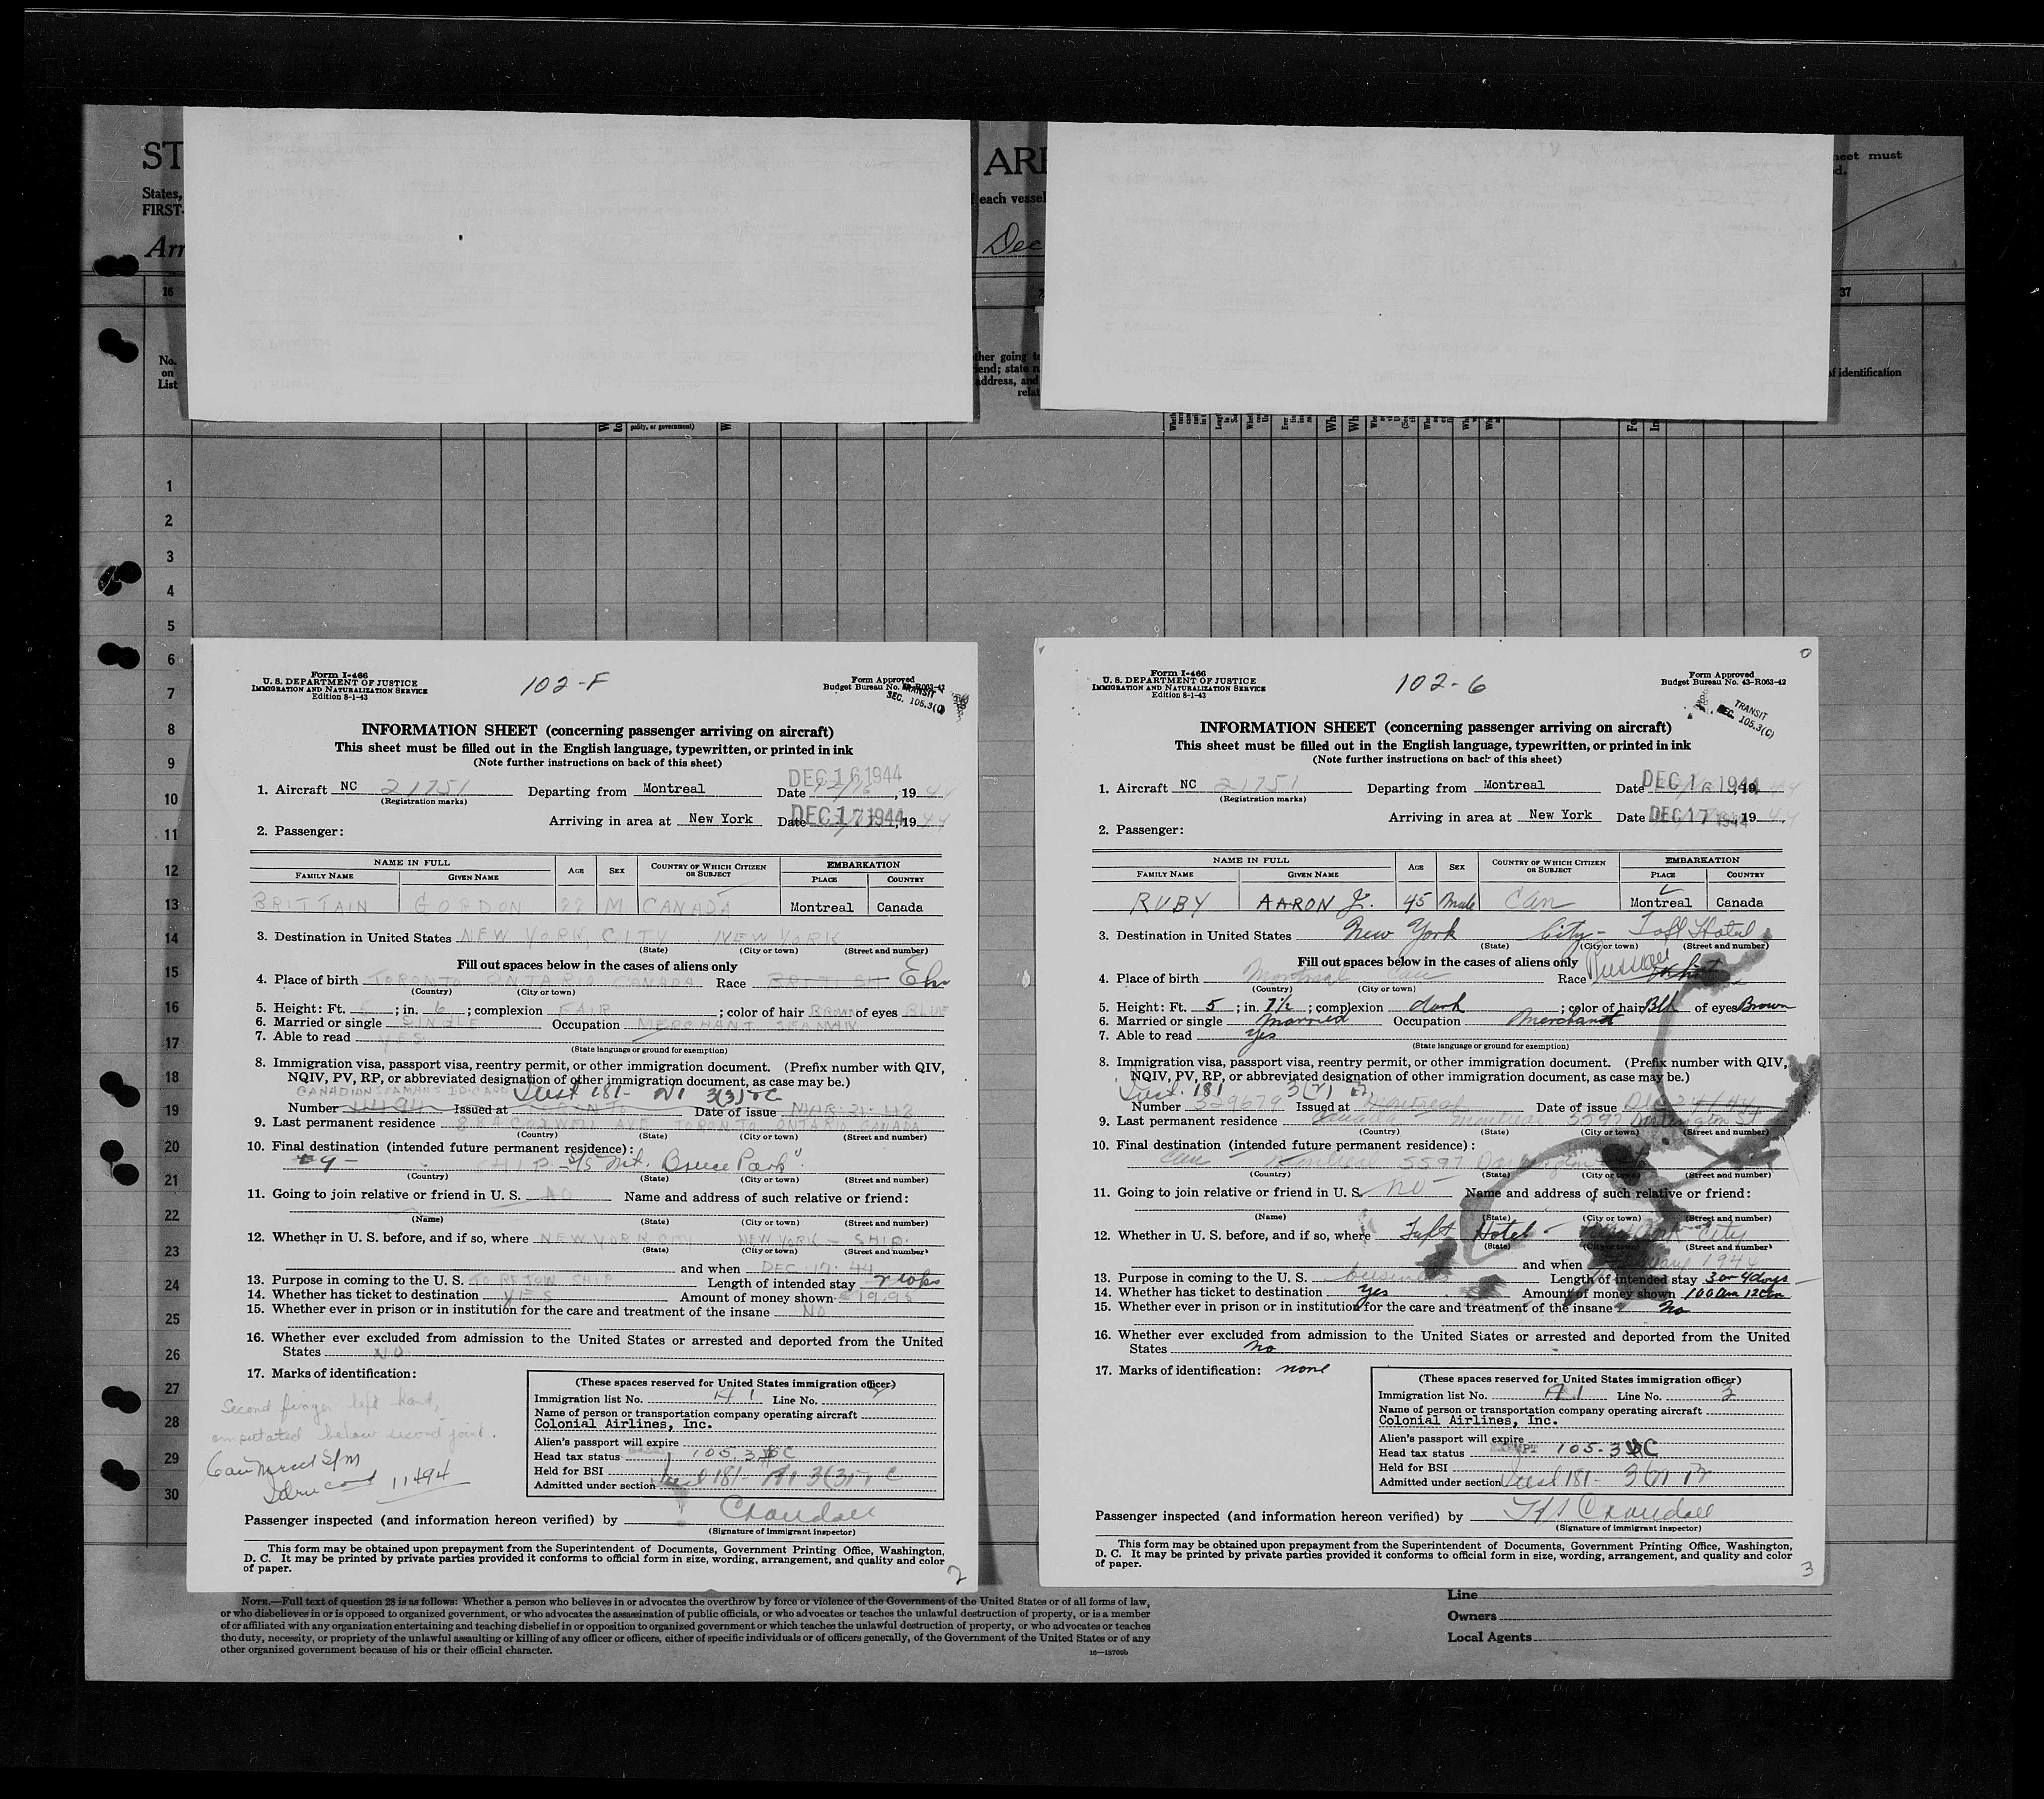 ST
ARI
neet must
d.
States,
each vessel
FIRST-
Arr
Dec
16
37
No.
on
List
ther going to
end; state n
address, and
relat
of identification
pality, or government)
1
2
3
4
5
6
7
8
9
10
11
12
13
14
15
16
17
18
19
20
21
22
23
24
25
26
27
28
29
30
Form I-466
U. S. DEPARTMENT OF JUSTICE
IMMIGRATION AND NATURALIZATION SERVICE
Edition 8-1-43
102-F
Form Approved
Budget Bureau No. 43-R063-42
TRANSIT
SEC. 105.3(C)
INFORMATION SHEET (concerning passenger arriving on aircraft)
This sheet must be filled out in the English language, typewritten, or printed in ink
(Note further instructions on back of this sheet)
DEC 16 1944
1. Aircraft NC 21751 Departing from Montreal Date 12/16, 1944
(Registration marks)
DEC 17 1944
Arriving in area at New York Date 1944
2. Passenger:
NAME IN FULL AGE SEX COUNTRY OF WHICH CITIZEN OR SUBJECT EMBARKATION
FAMILY NAME GIVEN NAME PLACE COUNTRY
BRITTAIN GORDON 22 M CANADA Montreal Canada
3. Destination in United States NEW YORK, CITY NEW YORK
(State) (City or town) (Street and number)
Fill out spaces below in the cases of aliens only
4. Place of birth TORONTO ONTARIO CANADA Race BRITISH
(Country) (City or town)
5. Height: Ft. ; in. 6 ; complexion FAIR ; color of hair BROWN of eyes BLUE
6. Married or single SINGLE Occupation MERCHANT SEAMAN
7. Able to read YES
(State language or ground for exemption)
8. Immigration visa, passport visa, reentry permit, or other immigration document. (Prefix number with QIV,
NQIV, PV, RP, or abbreviated designation of other immigration document, as case may be.)
CANADIAN SEAMANS ID. CARD
Number 11494 Issued at TORONTO Date of issue MAR. 31. 43
9. Last permanent residence 88A COXWELL AVE TORONTO ONTARIO CANADA
(Country) (State) (City or town) (Street and number)
10. Final destination (intended future permanent residence):
SHIP S/S Mt. Bruce Park"
(Country) (State) (City or town) (Street and number)
11. Going to join relative or friend in U. S. NO Name and address of such relative or friend:
(Name) (State) (City or town) (Street and number)
12. Whether in U. S. before, and if so, where NEW YORK CITY NEW YORK - SHIP.
(State) (City or town) (Street and number)
and when DEC. 17. 44
13. Purpose in coming to the U. S. TO REJOIN SHIP Length of intended stay
14. Whether has ticket to destination YES Amount of money shown 19.95
15. Whether ever in prison or in institution for the care and treatment of the insane NO
16. Whether ever excluded from admission to the United States or arrested and deported from the United
States NO.
17. Marks of identification:
Second finger left hand,
amputated below second joint.
11494
(These spaces reserved for United States immigration officer)
Immigration list No. A 1 Line No. 2
Name of person or transportation company operating aircraft
Colonial Airlines, Inc.
Alien's passport will expire
Head tax status 105.3 C
Held for BSI
Admitted under section
Passenger inspected (and information hereon verified) by Crandall
(Signature of immigrant inspector)
This form may be obtained upon prepayment from the Superintendent of Documents, Government Printing Office, Washington,
D. C. It may be printed by private parties provided it conforms to official form in size, wording, arrangement, and quality and color
of paper.
2
Form I-466
U. S. DEPARTMENT OF JUSTICE
IMMIGRATION AND NATURALIZATION SERVICE
Edition 8-1-43
102-6
Form Approved
Budget Bureau No. 43-R063-42
TRANSIT
SEC. 105.3(C)
INFORMATION SHEET (concerning passenger arriving on aircraft)
This sheet must be filled out in the English language, typewritten, or printed in ink
(Note further instructions on back of this sheet)
1. Aircraft NC 21751 Departing from Montreal Date DEC 16 1944
(Registration marks)
Arriving in area at New York Date DEC 17 1944
2. Passenger:
NAME IN FULL AGE SEX COUNTRY OF WHICH CITIZEN OR SUBJECT EMBARKATION
FAMILY NAME GIVEN NAME PLACE COUNTRY
RUBY AARON J. 45 Male Can Montreal Canada
3. Destination in United States New York City - Taft Hotel
(State) (City or town) (Street and number)
Fill out spaces below in the cases of aliens only
4. Place of birth Montreal Can Race Russian
(Country) (City or town)
5. Height: Ft. 5 ; in. 7½ ; complexion dark ; color of hair Blk of eyes Brown
6. Married or single Married Occupation Merchant
7. Able to read yes
(State language or ground for exemption)
8. Immigration visa, passport visa, reentry permit, or other immigration document. (Prefix number with QIV,
NQIV, PV, RP, or abbreviated designation of other immigration document, as case may be.)
Number 329679 Issued at Montreal Date of issue
9. Last permanent residence Canada Montreal 5597
(Country) (State) (City or town) (Street and number)
10. Final destination (intended future permanent residence):
Can Montreal 5597
(Country) (State) (City or town) (Street and number)
11. Going to join relative or friend in U. S. no Name and address of such relative or friend:
(Name) (State) (City or town) (Street and number)
12. Whether in U. S. before, and if so, where Taft Hotel - New York City
(State) (City or town) (Street and number)
and when 1944
13. Purpose in coming to the U. S. business Length of intended stay 3 or 4 days
14. Whether has ticket to destination yes Amount of money shown
15. Whether ever in prison or in institution for the care and treatment of the insane no
16. Whether ever excluded from admission to the United States or arrested and deported from the United
States no
17. Marks of identification: none
(These spaces reserved for United States immigration officer)
Immigration list No. A 1 Line No. 3
Name of person or transportation company operating aircraft
Colonial Airlines, Inc.
Alien's passport will expire
Head tax status 105.3 C
Held for BSI
Admitted under section
Passenger inspected (and information hereon verified) by Crandall
(Signature of immigrant inspector)
This form may be obtained upon prepayment from the Superintendent of Documents, Government Printing Office, Washington,
D. C. It may be printed by private parties provided it conforms to official form in size, wording, arrangement, and quality and color
of paper.
3
NOTE.—Full text of question 28 is as follows: Whether a person who believes in or advocates the overthrow by force or violence of the Government of the United States or of all forms of law,
or who disbelieves in or is opposed to organized government, or who advocates the assassination of public officials, or who advocates or teaches the unlawful destruction of property, or is a member
of or affiliated with any organization entertaining and teaching disbelief in or opposition to organized government or which teaches the unlawful destruction of property, or who advocates or teaches
the duty, necessity, or propriety of the unlawful assaulting or killing of any officer or officers, either of specific individuals or of officers generally, of the Government of the United States or of any
other organized government because of his or their official character.
16—18709b
Line
Owners
Local Agents